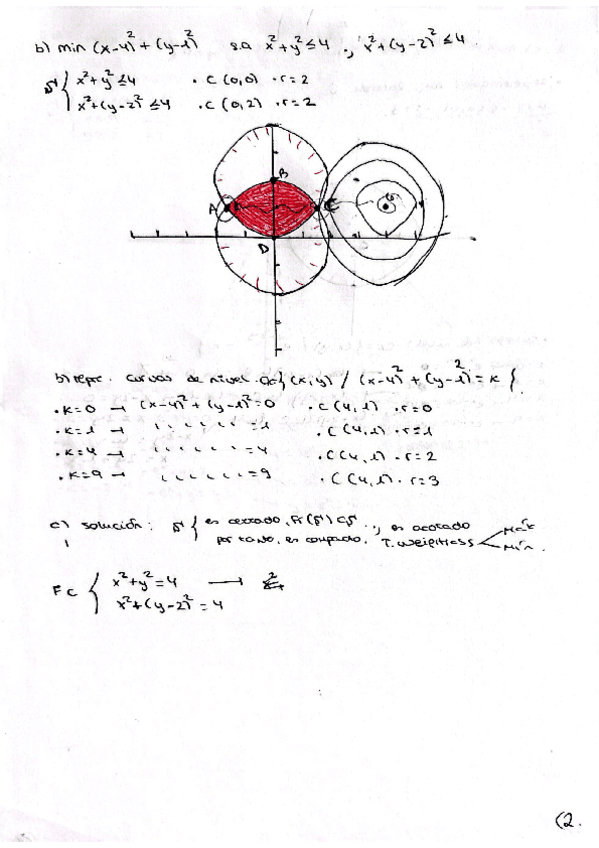 b) min (x-4)² + (y-1)² s.a x²+y² ≤ 4 ., x²+(y-2)² ≤ 4
S { x²+y² ≤ 4 · C (0,0) · r=2
x²+(y-2)² ≤ 4 · C (0,2) · r=2
B
A C G
D
b) repr. curvas de nivel { (x,y) / (x-4)² + (y-1)² = k }.
· k=0 → (x-4)² + (y-1)² = 0 · C (4,1) · r=0
· k=1 → ' ' ' ' ' ' = 1 · C (4,1) · r=1
· k=4 → ' ' ' ' ' ' = 4 · C (4,1) · r=2
· k=9 → ' ' ' ' ' ' = 9 · C (4,1) · r=3
c) solución: S { es cerrado, Fr(S) ⊂ S ., es acotado
por tanto, es compacto. T. Weiertrass < Máx
Mín.
Fc { x²+y² = 4 →
x²+(y-2)² = 4
(2.